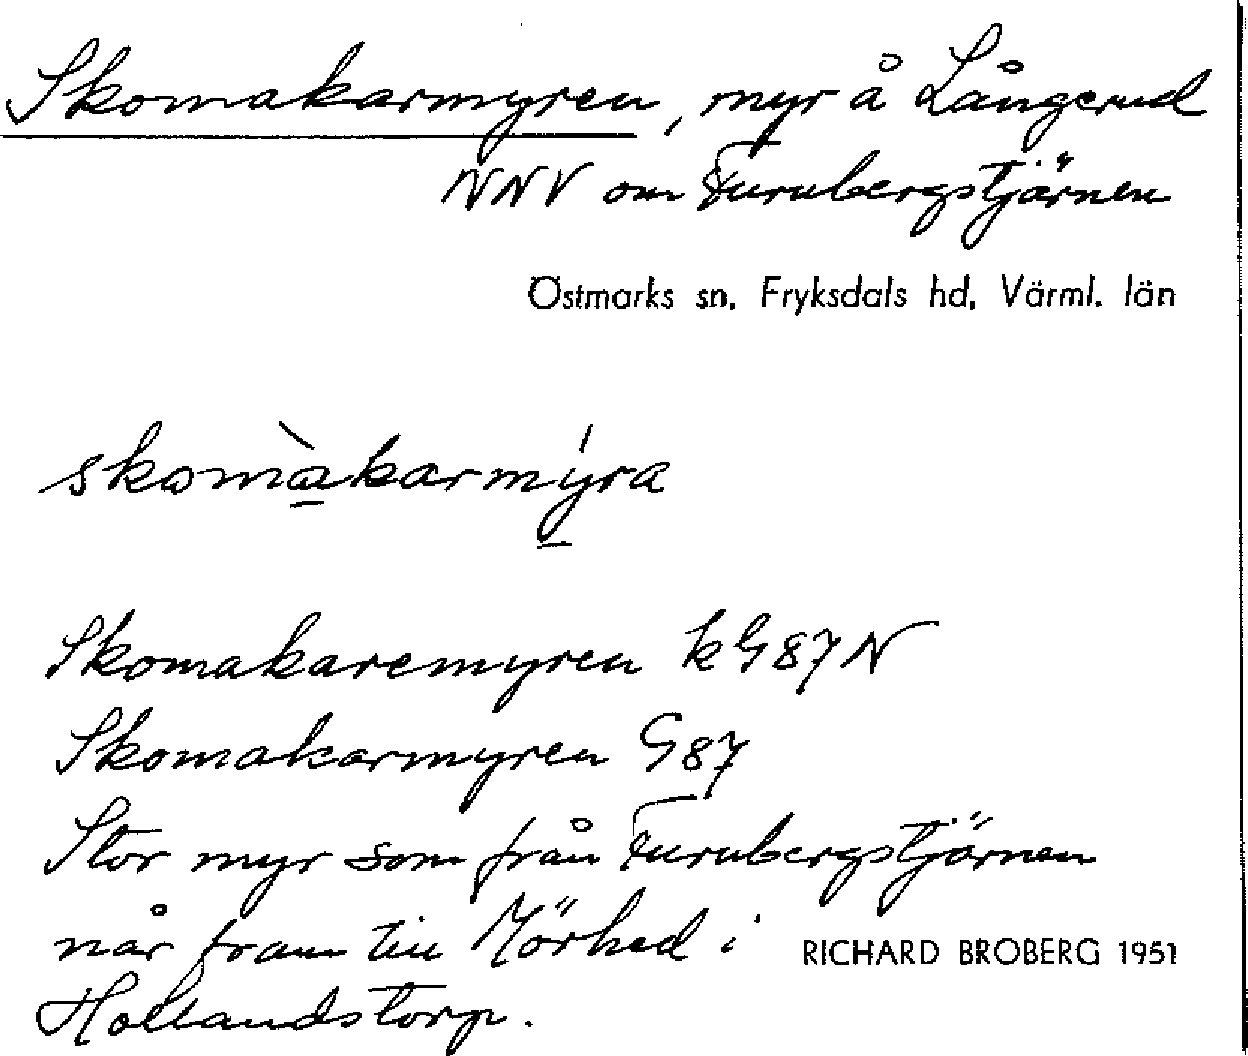 Skomakarmyren, myr å Långerud
NNV om Furubergstjärnen
Östmarks sn, Fryksdals hd, Värml. län
skomàkarmýra
Skomakaremyren kG87N
Skomakarmyren G87
Stor myr som från Furubergstjärnen
når fram till Mörhed i
Hollandstorp.
RICHARD BROBERG 1951